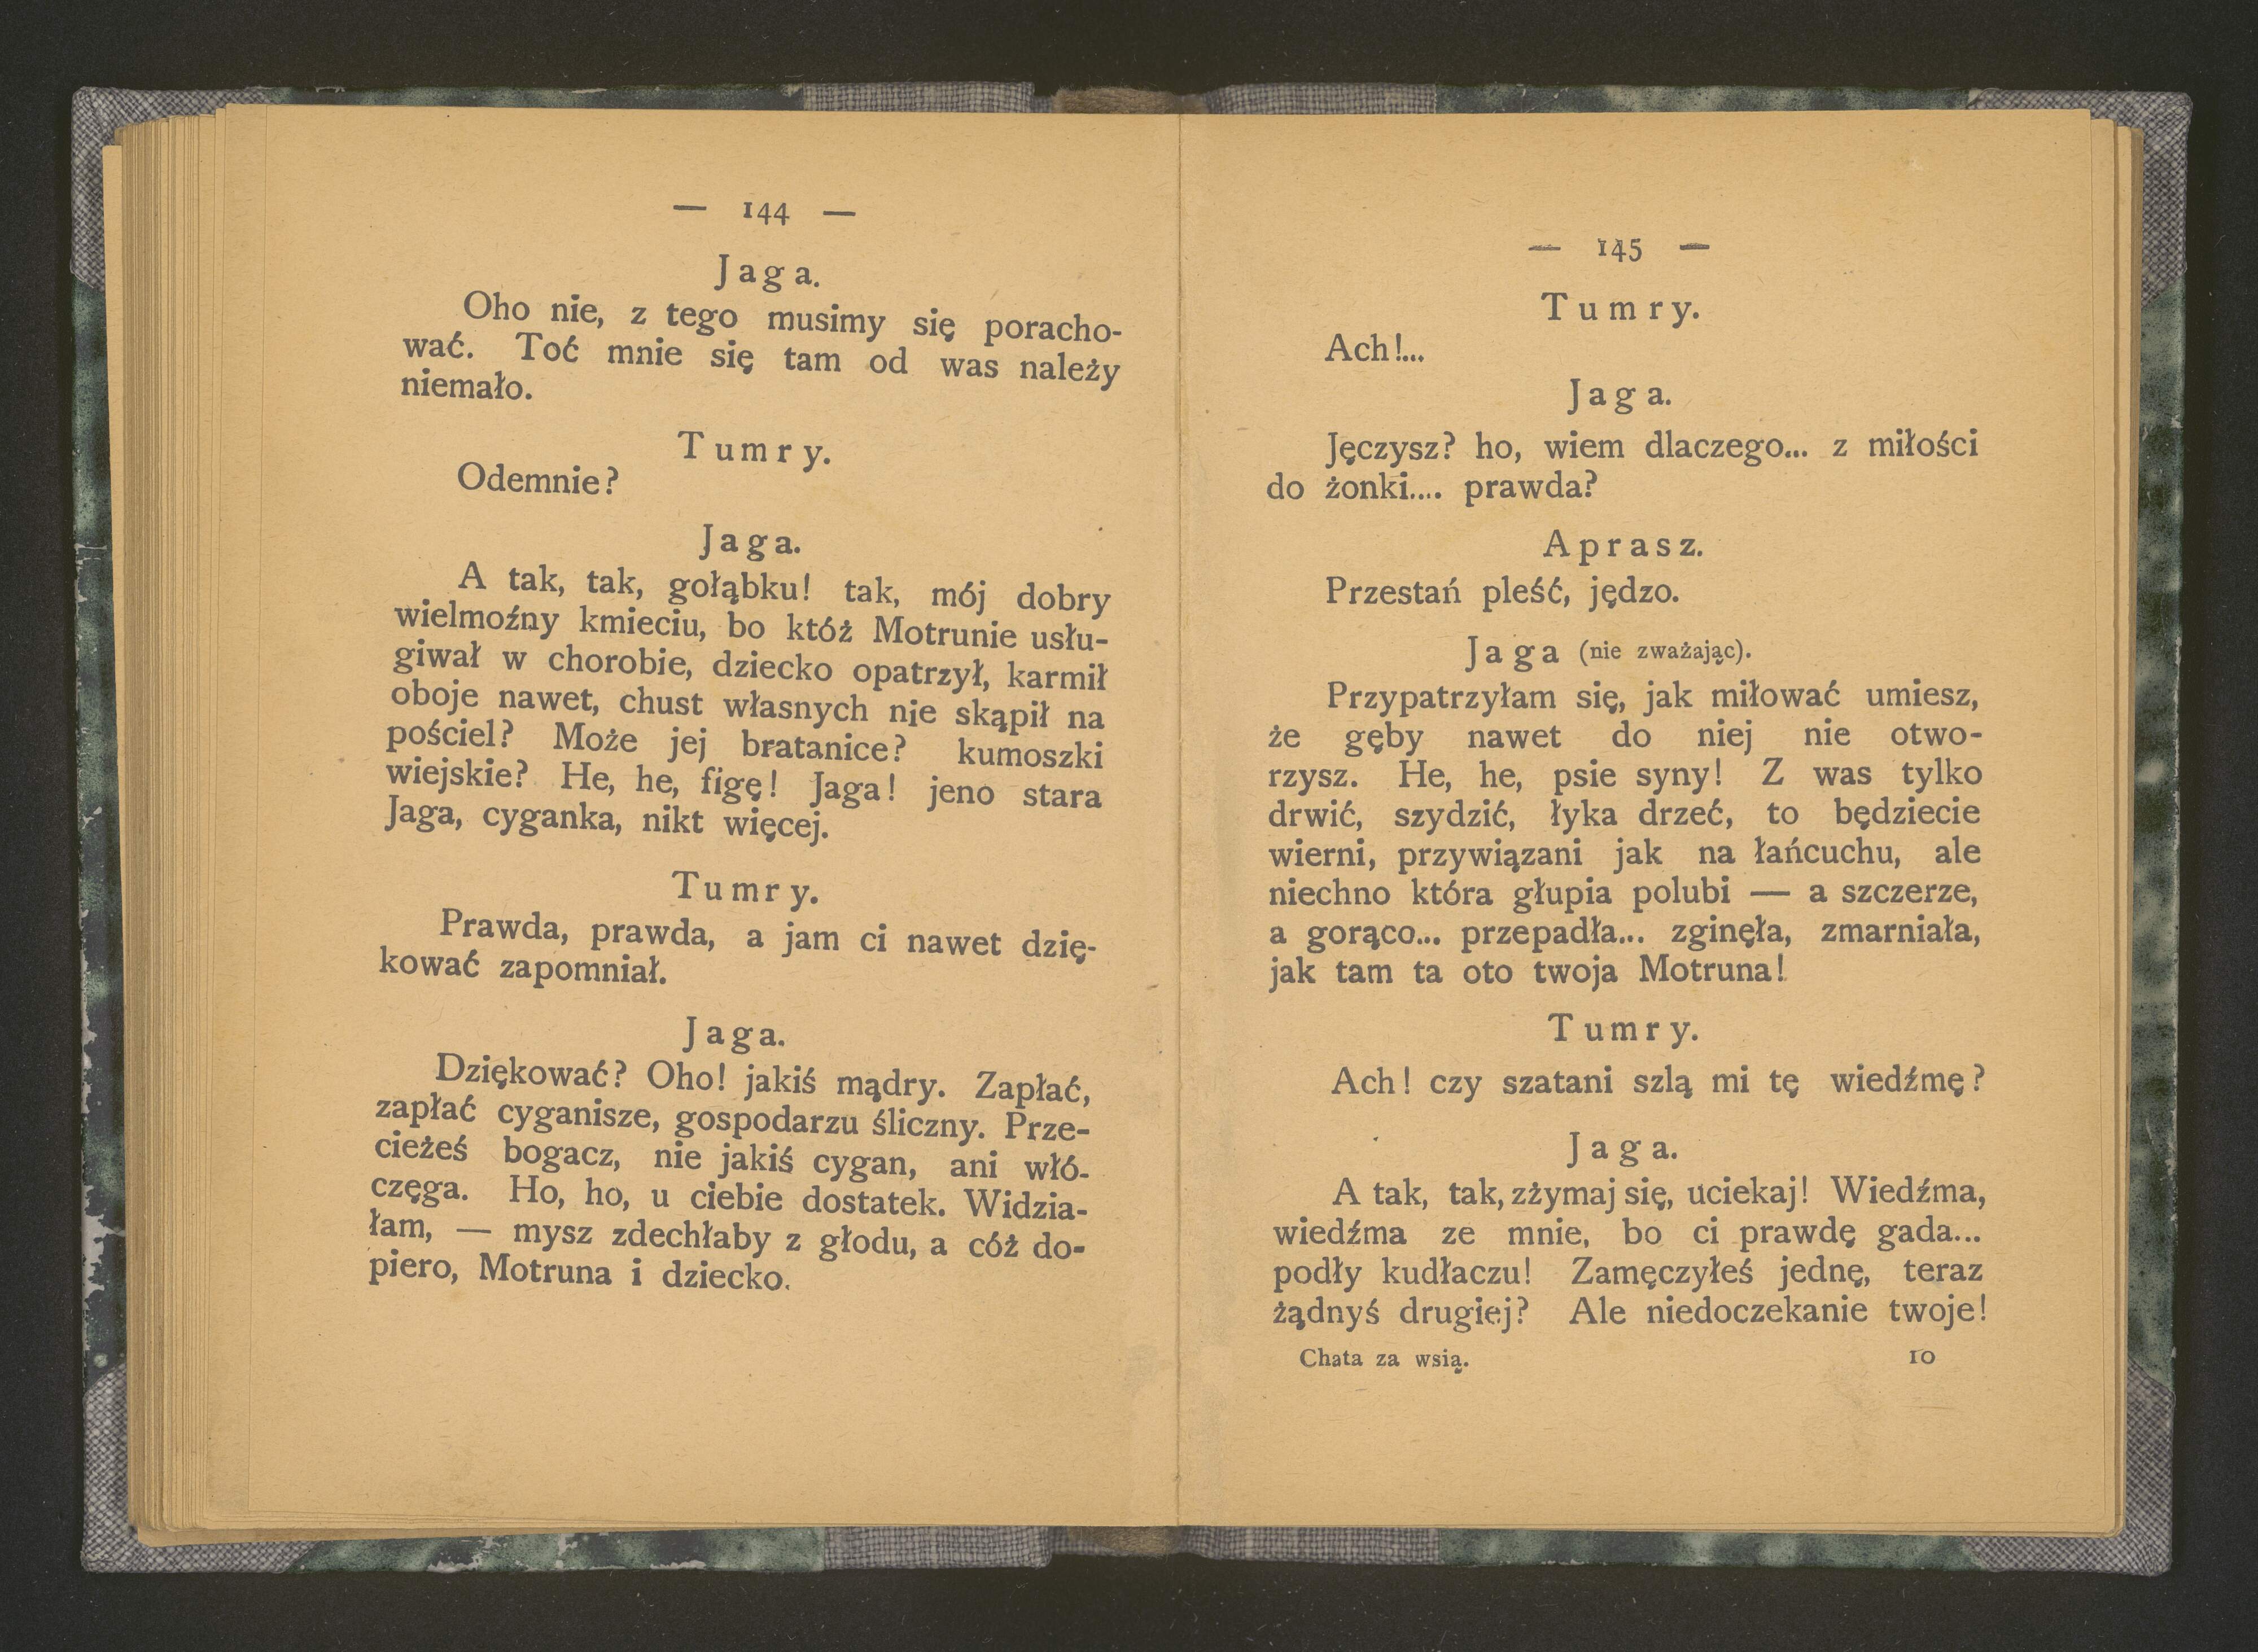 — 144 —
Jaga.
Oho nie, z tego musimy się poracho-
wać. Toć mnie się tam od was należy
niemało.
Tumry.
Odemnie?
Jaga.
A tak, tak, gołąbku! tak, mój dobry
wielmoźny kmieciu, bo któż Motrunie usłu-
giwał w chorobie, dziecko opatrzył, karmił
oboje nawet, chust własnych nie skąpił na
pościel? Może jej bratanice? kumoszki
wiejskie? He, he, figę! Jaga! jeno stara
Jaga, cyganka, nikt więcej.
Tumry.
Prawda, prawda, a jam ci nawet dzię-
kować zapomniał.
Jaga.
Dziękować? Oho! jakiś mądry. Zapłać,
zapłać cyganisze, gospodarzu śliczny. Prze-
cieżeś bogacz, nie jakiś cygan, ani włó-
częga. Ho, ho, u ciebie dostatek. Widzia-
łam, — mysz zdechłaby z głodu, a cóż do-
piero, Motruna i dziecko.
— 145 —
Tumry.
Ach!...
Jaga.
Jęczysz? ho, wiem dlaczego... z miłości
do żonki.... prawda?
Aprasz.
Przestań pleść, jędzo.
Jaga (nie zważając).
Przypatrzyłam się, jak miłować umiesz,
że gęby nawet do niej nie otwo-
rzysz. He, he, psie syny! Z was tylko
drwić, szydzić, łyka drzeć, to będziecie
wierni, przywiązani jak na łańcuchu, ale
niechno która głupia polubi — a szczerze,
a gorąco... przepadła... zginęła, zmarniała,
jak tam ta oto twoja Motruna!
Tumry.
Ach! czy szatani szlą mi tę wiedźmę?
Jaga.
A tak, tak, zżymaj się, uciekaj! Wiedźma,
wiedźma ze mnie, bo ci prawdę gada...
podły kudłaczu! Zamęczyłeś jednę, teraz
żądnyś drugiej? Ale niedoczekanie twoje!
Chata za wsią. 10